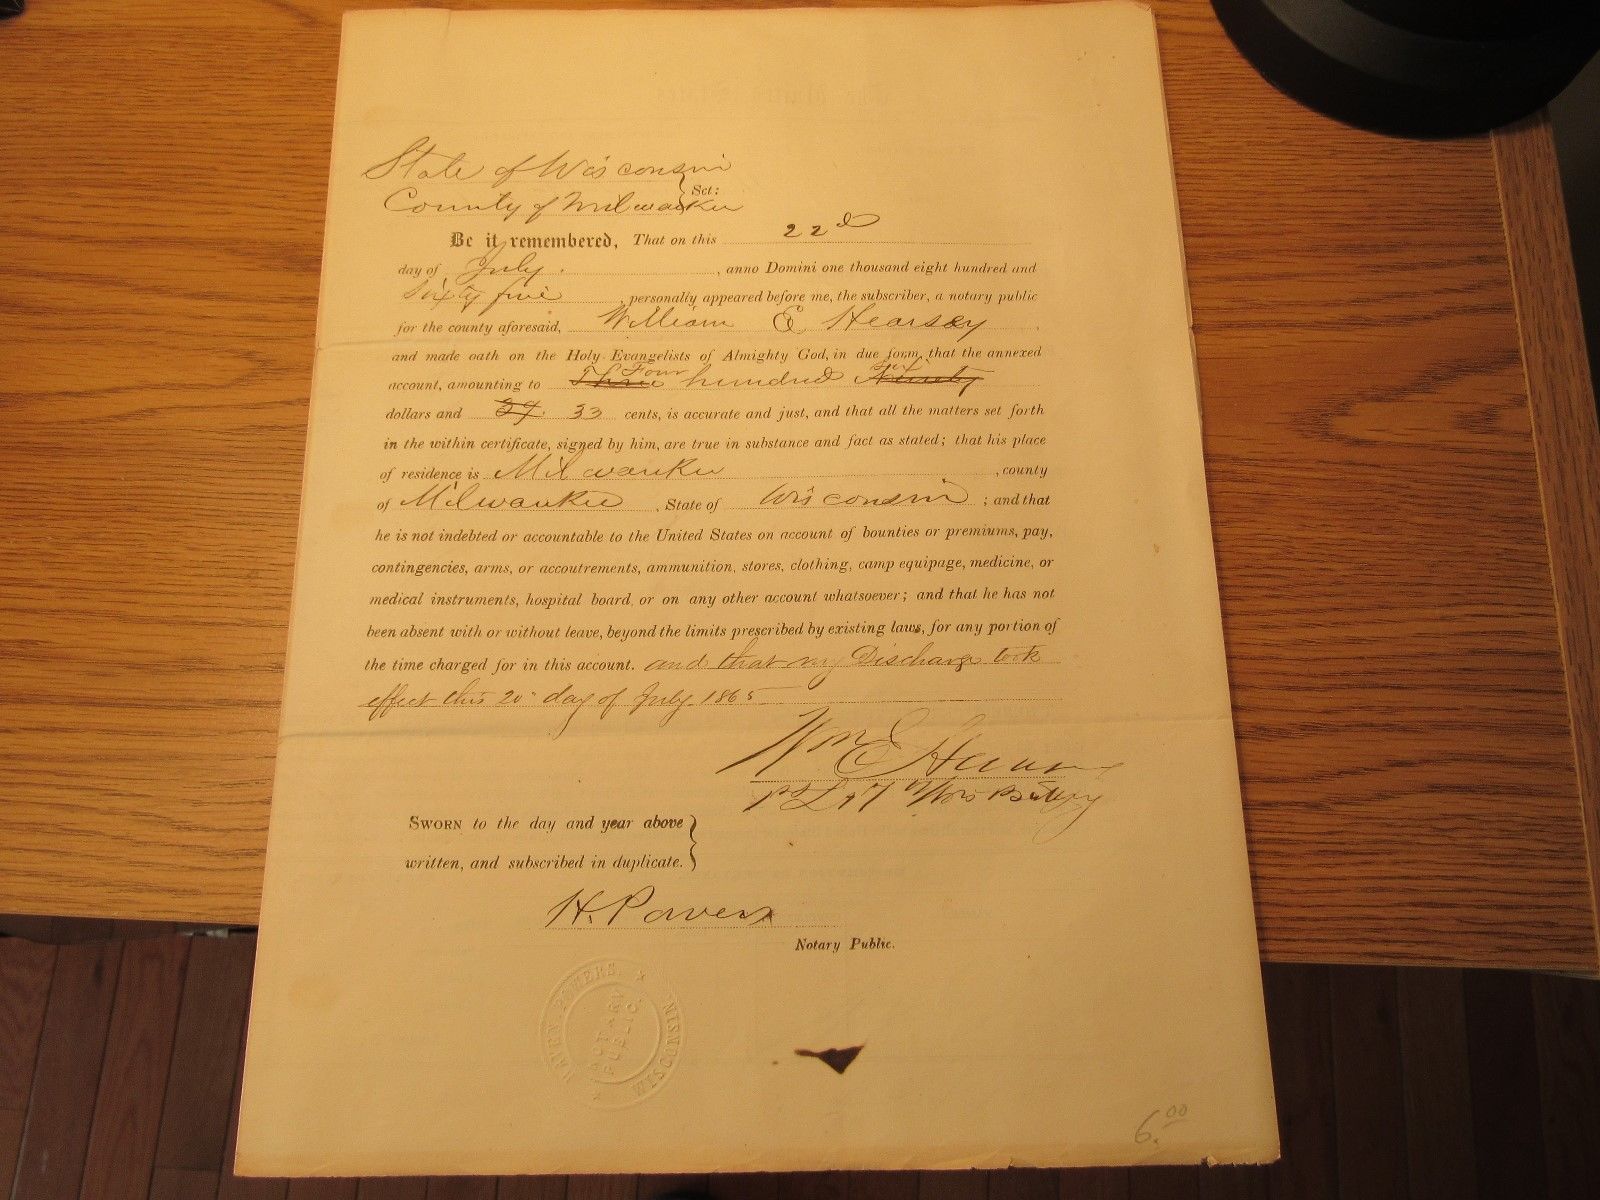 State of Wisconsin
Sct:
County of Milwaukee
Be it remembered, That on this 22d
day of July, anno Domini one thousand eight hundred and
Sixty five, personally appeared before me, the subscriber, a notary public
for the county aforesaid, William E Hearsey
and made oath on the Holy Evangelists of Almighty God, in due form, that the annexed
Four Six
account, amounting to Three hundred Ninety
dollars and 39. 33 cents, is accurate and just, and that all the matters set forth
in the within certificate, signed by him, are true in substance and fact as stated; that his place
of residence is Milwaukee, county
of Milwaukee, State of Wisconsin; and that
he is not indebted or accountable to the United States on account of bounties or premiums, pay,
contingencies, arms, or accoutrements, ammunition, stores, clothing, camp equipage, medicine, or
medical instruments, hospital board, or on any other account whatsoever; and that he has not
been absent with or without leave, beyond the limits prescribed by existing laws, for any portion of
the time charged for in this account. and that my Discharge took
effect this 20" day of July 1865
Wm E Hearsey
1st Lt 7th Wis Battery
SWORN to the day and year above
written, and subscribed in duplicate.
H. Powers
Notary Public.
POWERS. * WISCONSIN *
NOTARY
PUBLIC.
6.00